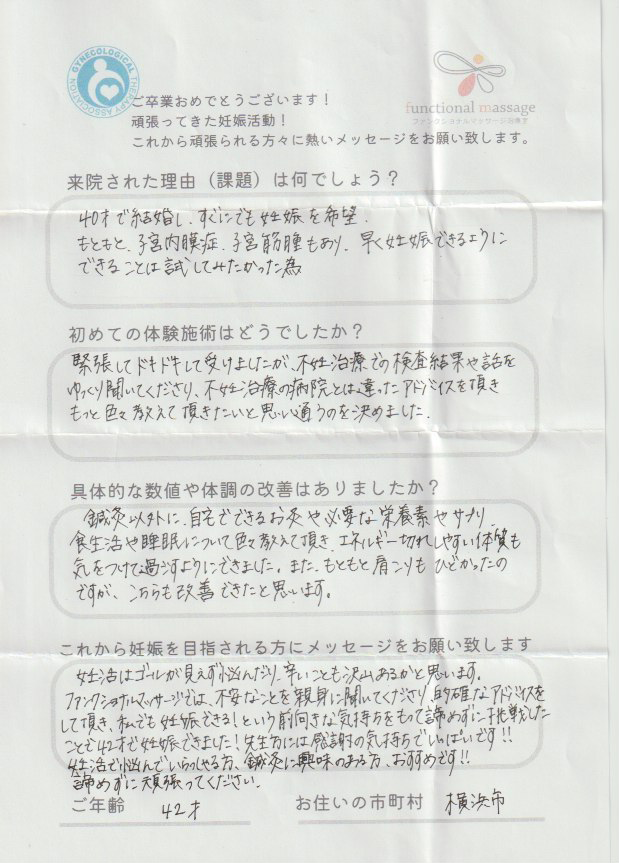 GYNECOLOGICAL THERAPY ASSOCIATION
functional massage
ファンクショナルマッサージ治療室
ご卒業おめでとうございます!
頑張ってきた妊娠活動!
これから頑張られる方々に熱いメッセージをお願い致します。
来院された理由(課題)は何でしょう?
40才で結婚し、すぐにでも妊娠を希望。
もともと、子宮内膜症、子宮筋腫もあり、早く妊娠できるように
できることは試してみたかった為
初めての体験施術はどうでしたか?
緊張してドキドキして受けましたが、不妊治療での検査結果や話を
ゆっくり聞いてくださり、不妊治療の病院とは違ったアドバイスを頂き
もっと色々教えて頂きたいと思い通うのを決めました。
具体的な数値や体調の改善はありましたか?
鍼灸以外に、自宅でできるお灸や必要な栄養素やサプリ、
食生活や睡眠について色々教えて頂き、エネルギー切れしやすい体質も
気をつけて過ごすようにできました。また、もともと肩こりもひどかったの
ですが、こちらも改善できたと思います。
これから妊娠を目指される方にメッセージをお願い致します
妊活はゴールが見えず悩んだり、辛いことも沢山あるかと思います。
ファンクショナルマッサージでは、不安なことを親身に聞いてくださり、的確なアドバイスを
して頂き、私でも妊娠できる!という前向きな気持ちをもって諦めずに挑戦した
ことで42才で妊娠できました!先生方には感謝の気持ちでいっぱいです!!
妊活で悩んでいらっしゃる方、鍼灸に興味のある方、おすすめです!!
諦めずに頑張ってください。
ご年齢 42才 お住いの市町村 横浜市